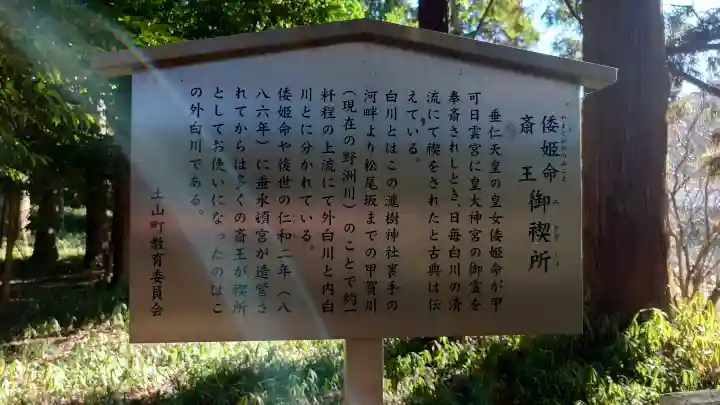 倭姫命
やまとひめのみこと
斎王
御禊所
みそぎしょ
垂仁天皇の皇女倭姫命が甲
可日雲宮に皇大神宮の御霊を
奉斎されしとき、日毎白川の清
流にて禊をされたと古典は伝
えている。
白川とはこの瀧樹神社裏手の
河畔より松尾坂までの甲賀川
（現在の野洲川）のことで約一
粁程の上流にて外白川と内白
川とに分かれている。
倭姫命や後世の仁和二年（八
八六年）に垂水頓宮が造営さ
れてからは多くの斎王が禊所
としてお使いになったのはこ
の外白川である。
土山町教育委員会